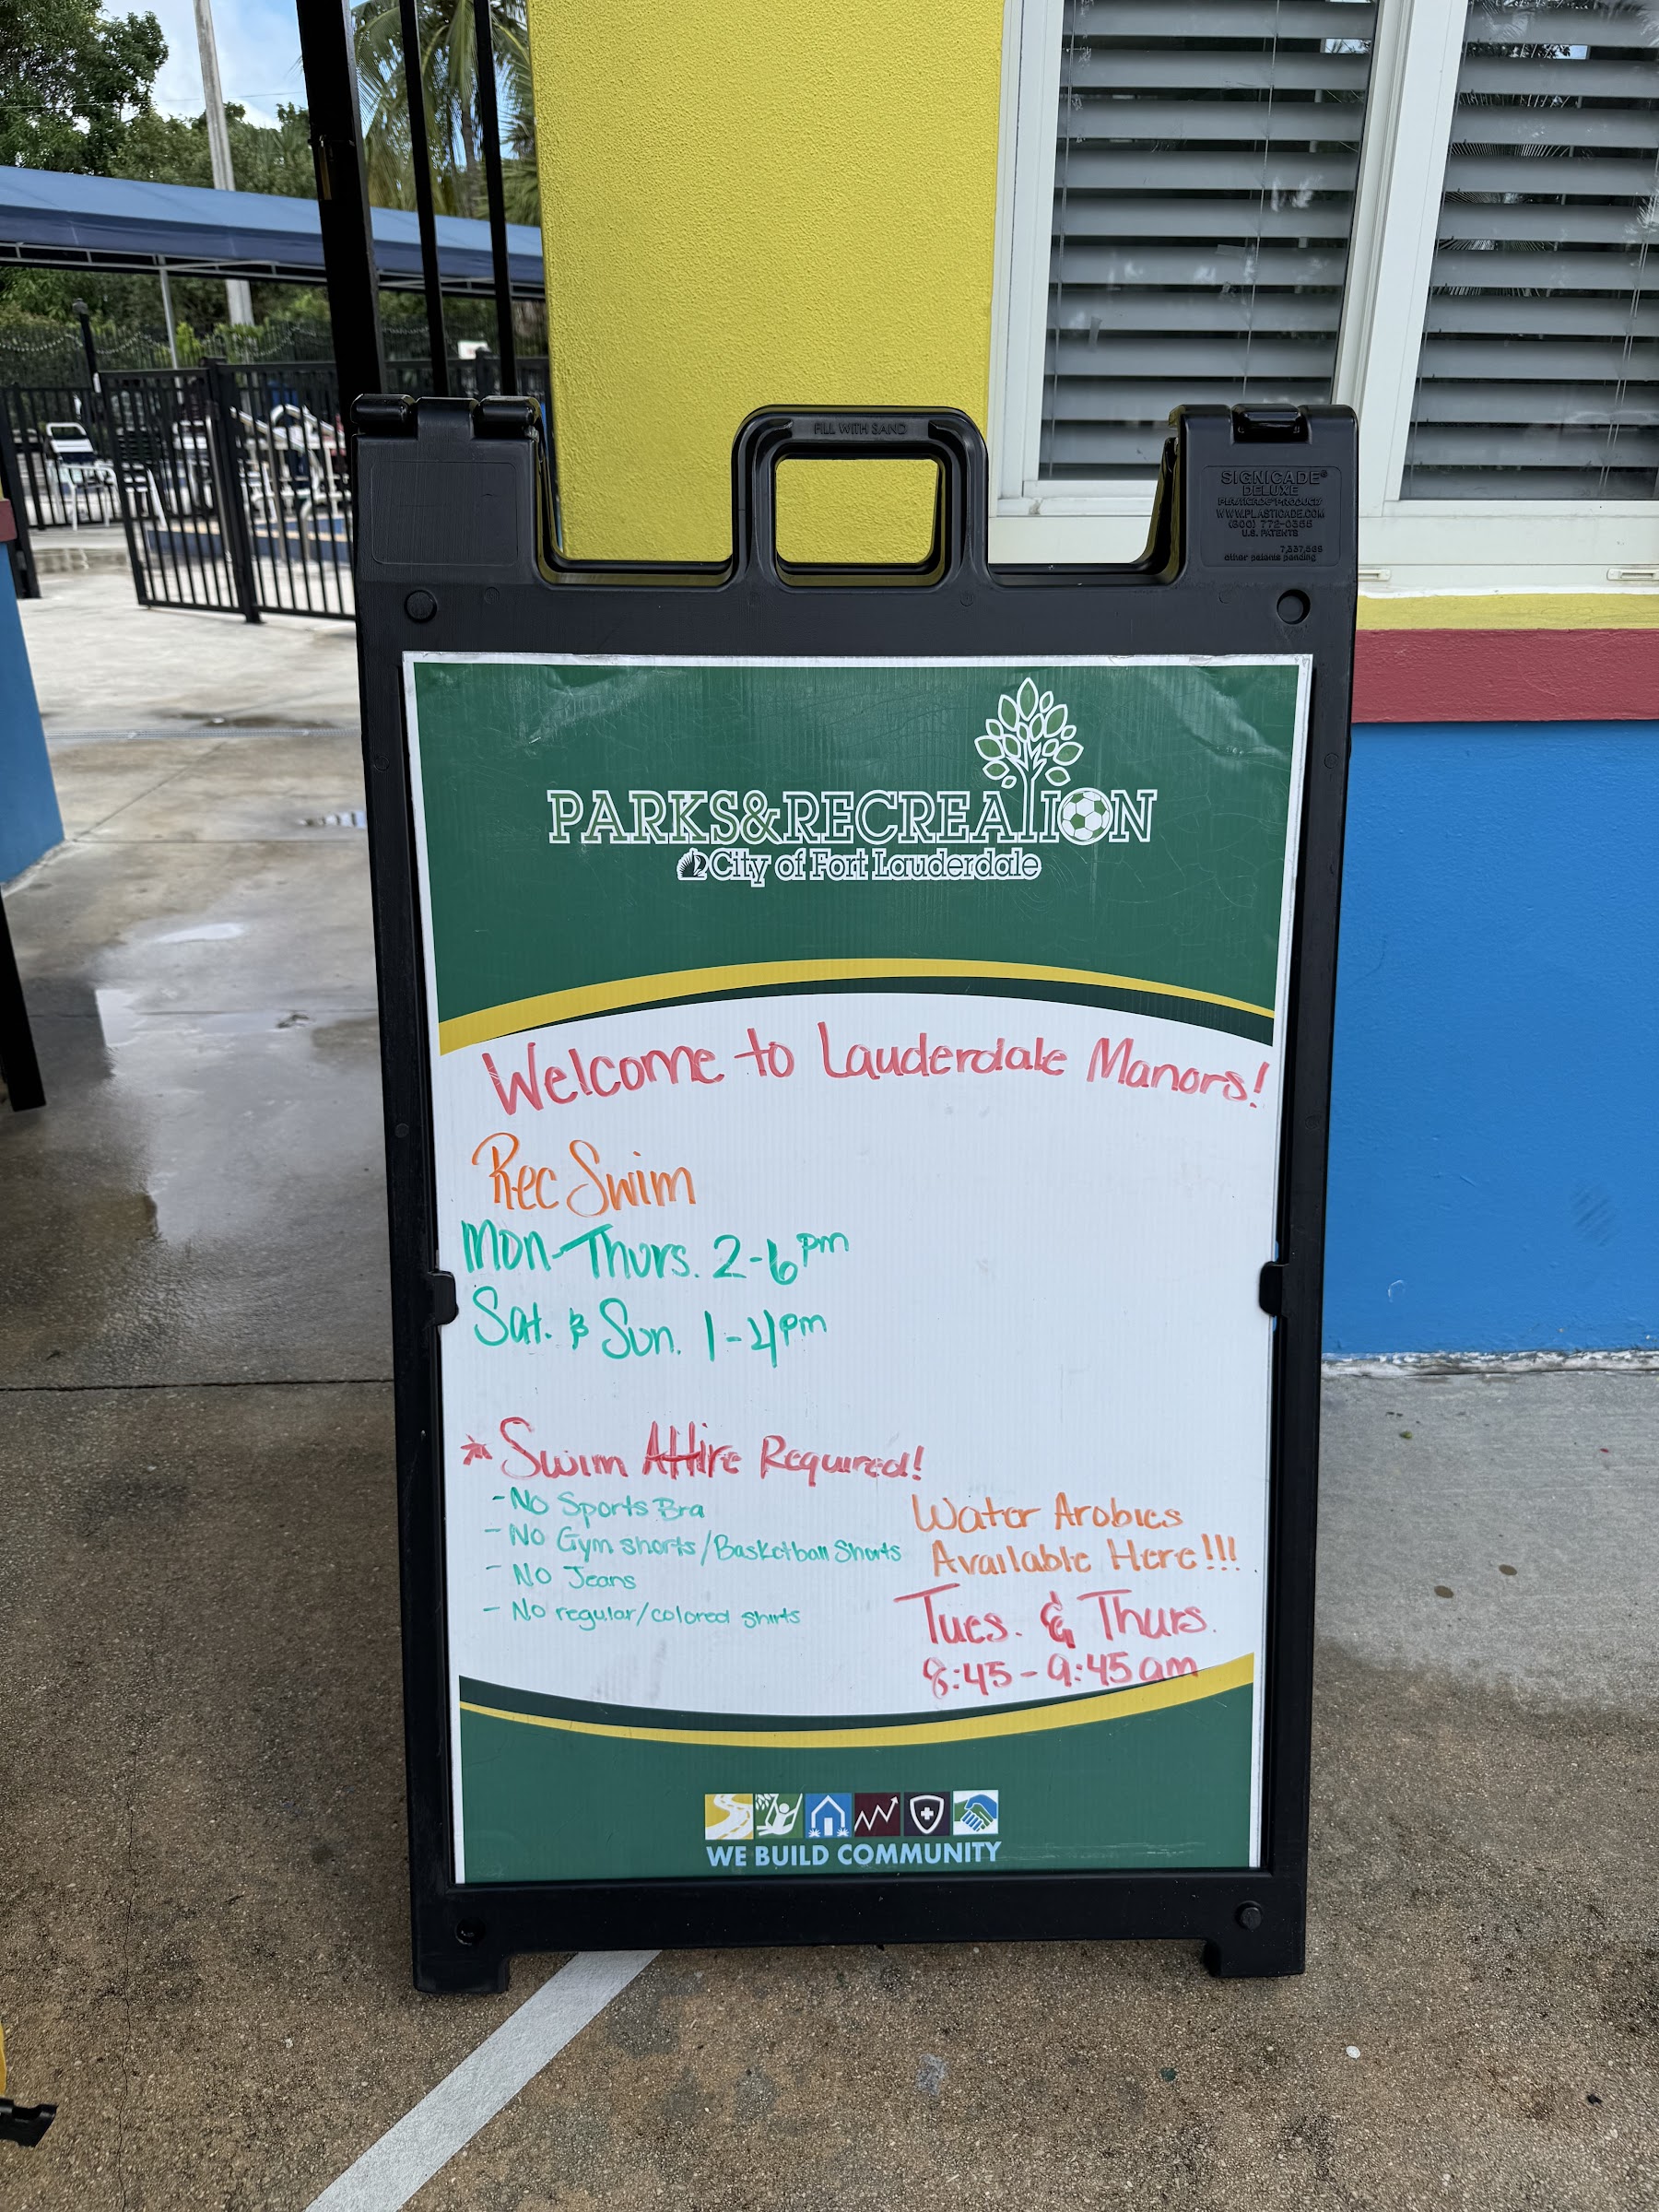 FILL WITH SAND
SIGNICADE®
DELUXE
PLASTICADE PRODUCTS
WWW.PLASTICADE.COM
(800) 772-0355
U.S. PATENTS
other patents pending
PARKS&RECREATION
City of Fort Lauderdale
Welcome to Lauderdale Manors!
Rec Swim
Mon-Thurs. 2-6pm
Sat. & Sun. 1-4pm
* Swim Attire Required!
- No Sports Bra
- No Gym shorts/Basketball Shorts
- No Jeans
- No regular/colored shirts
Water Arobics
Available Here!!!
Tues. & Thurs.
8:45 - 9:45am
WE BUILD COMMUNITY